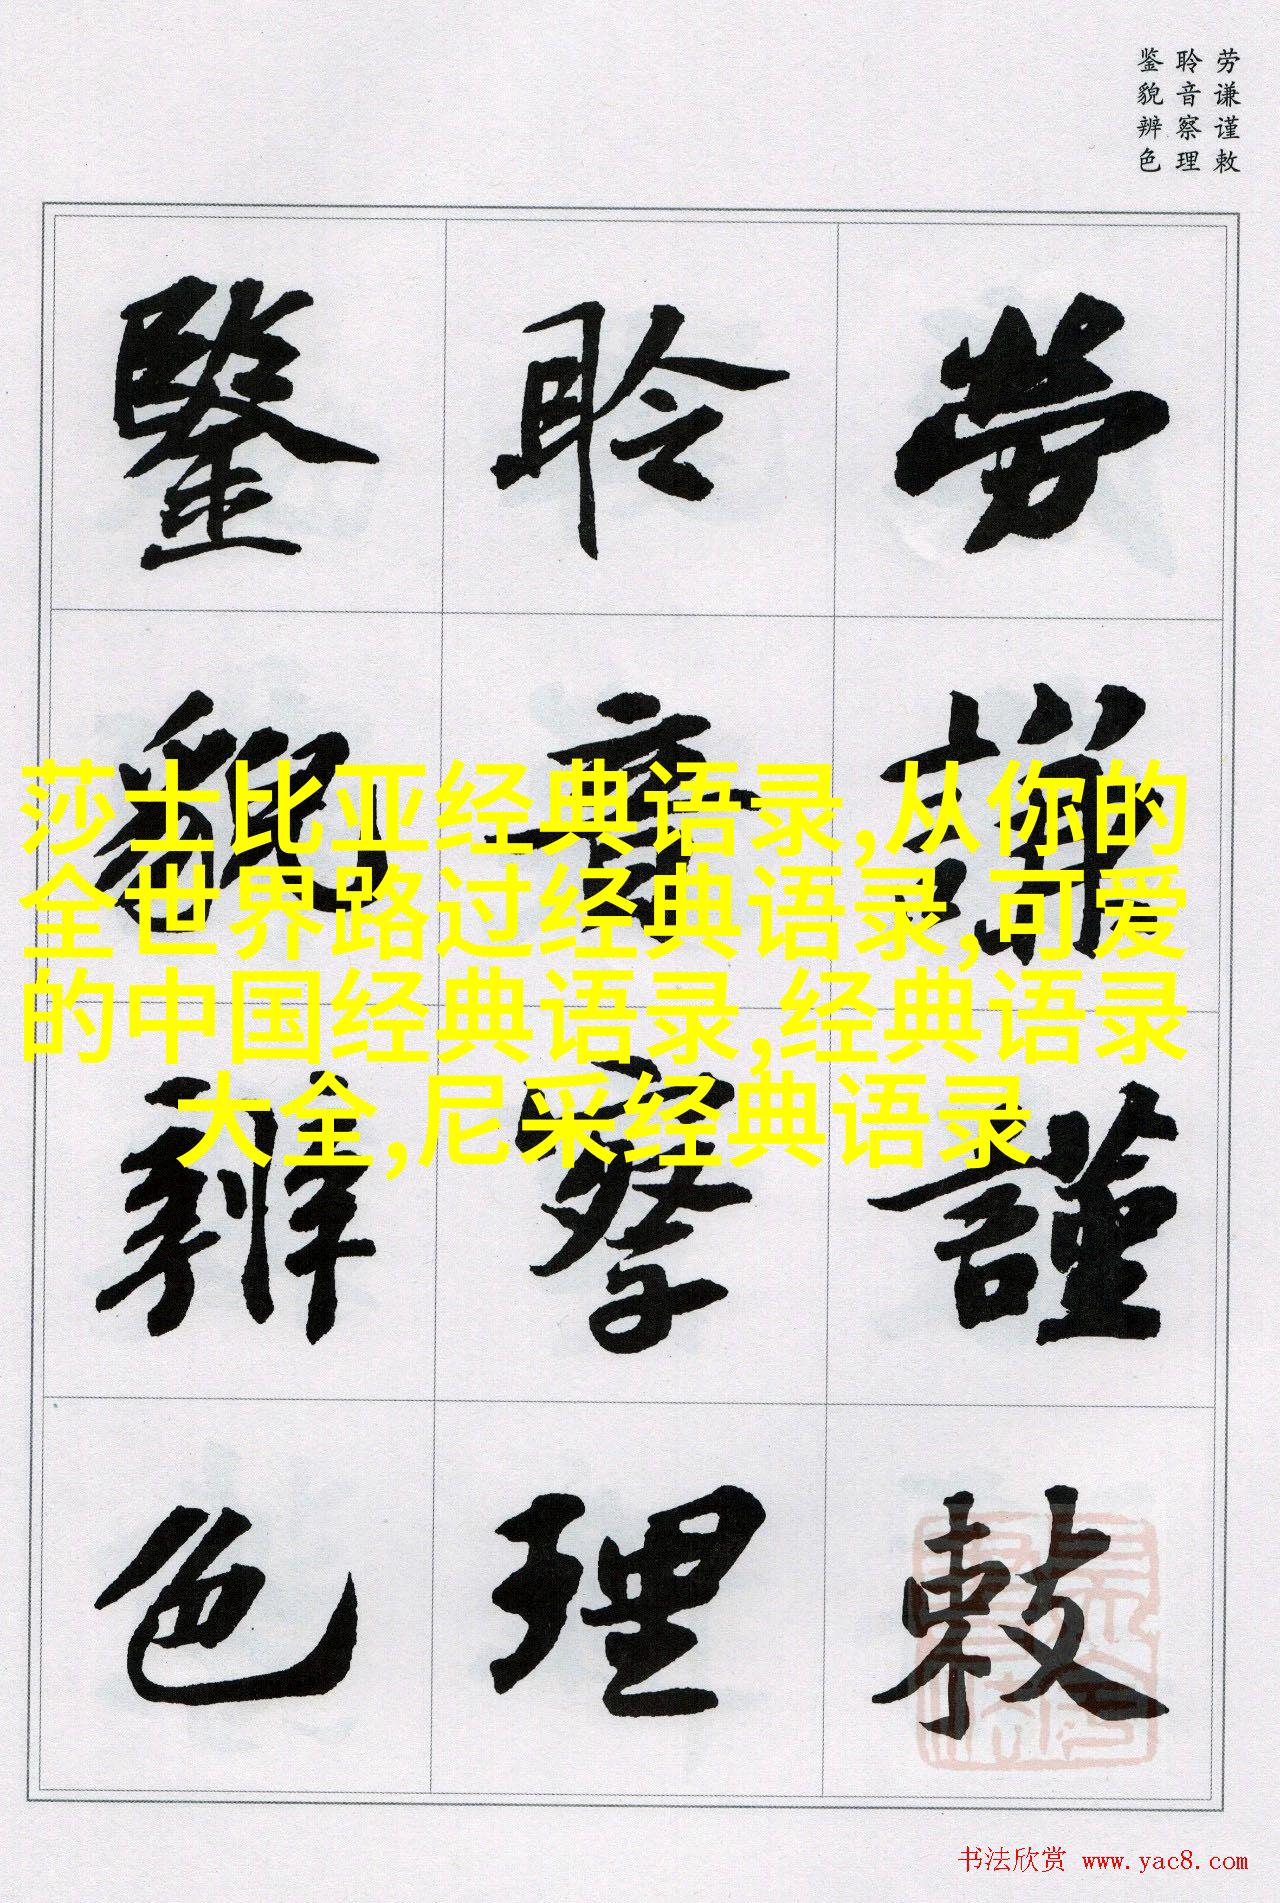 劳谦谨敕
聆音察理
鉴貌辨色
勞謙謹敕
聆音察理
鑒貌辨色
莎士比亚经典语录,从你的
全世界路过经典语录,可爱
的中国经典语录,经典语录
大全,尼采经典语录
书法欣赏 www.yac8.com